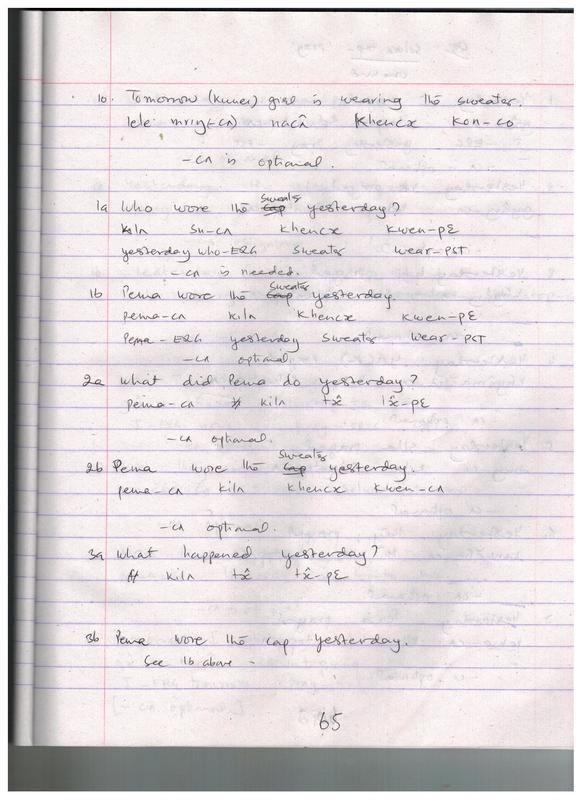 10. Tomorrow (Kumer) girl is wearing the sweater.
lele mriŋ(-cʌ) nacâ khencx kon-co
-cʌ is optional.
1a Who wore the Sweater yesterday?
kilʌ su-cʌ khencx kwen-pɛ
yesterday who-ERG sweater wear-PST
-cʌ is needed.
1b Pema wore the Sweater yesterday.
pema-cʌ kilʌ khencx kwen-pɛ
Pema-ERG yesterday sweater wear-PST
-cʌ optional
2a What did Pema do yesterday?
pema-cʌ kilʌ tx̂ lx̂-pɛ
-cʌ optional.
2b Pema wore the Sweater yesterday.
pema-cʌ kilʌ khencx kwen-cʌ
-cʌ optional.
3a What happened yesterday?
kilʌ tx̂ tx̂-pɛ
3b Pema wore the cap yesterday.
See 1b above -
65